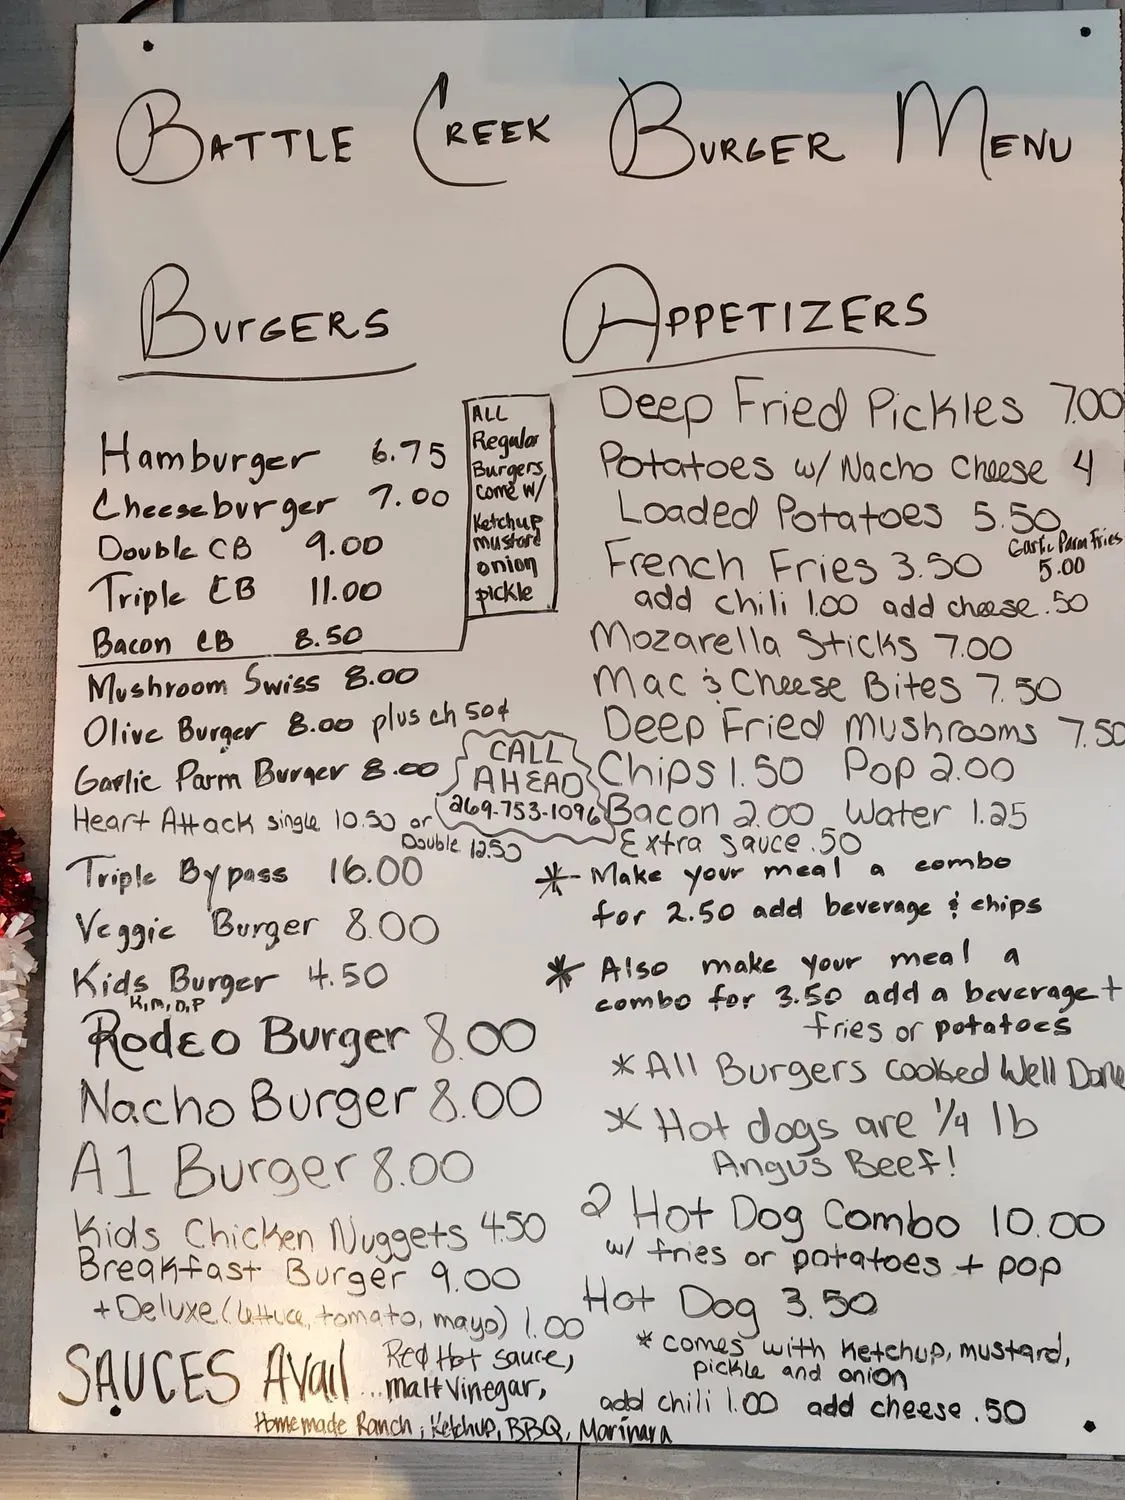 BATTLE CREEK BURGER MENU
BURGERS
Hamburger 6.75
Cheeseburger 7.00
Double CB 9.00
Triple CB 11.00
Bacon CB 8.50
ALL
Regular
Burgers
come w/
Ketchup
mustard
onion
pickle
Mushroom Swiss 8.00
Olive Burger 8.00 plus ch 50¢
Garlic Parm Burger 8.00
Heart Attack single 10.50 or
Double 12.50
CALL
AHEAD
269-753-1096
Triple Bypass 16.00
Veggie Burger 8.00
Kids Burger 4.50
K, M, O, P
Rodeo Burger 8.00
Nacho Burger 8.00
A1 Burger 8.00
Kids Chicken Nuggets 4.50
Breakfast Burger 9.00
+ Deluxe (lettuce, tomato, mayo) 1.00
SAUCES Avail ... Red Hot sauce,
malt vinegar,
Homemade Ranch, Ketchup, BBQ, Marinara
APPETIZERS
Deep Fried Pickles 7.00
Potatoes w/ Nacho Cheese 4
Loaded Potatoes 5.50
Garlic Parm Fries
5.00
French Fries 3.50
add chili 1.00 add cheese .50
Mozarella Sticks 7.00
Mac & Cheese Bites 7.50
Deep Fried Mushrooms 7.50
Chips 1.50 Pop 2.00
Bacon 2.00 Water 1.25
Extra sauce .50
* Make your meal a combo
for 2.50 add beverage & chips
* Also make your meal a
combo for 3.50 add a beverage +
fries or potatoes
* All Burgers cooked Well Done
* Hot dogs are 1/4 lb
Angus Beef!
2 Hot Dog Combo 10.00
w/ fries or potatoes + pop
Hot Dog 3.50
* comes with ketchup, mustard,
pickle and onion
add chili 1.00 add cheese .50